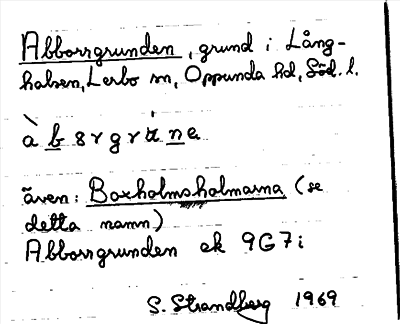 Abborrgrunden, grund i Lång-
halsen, Lerbo sn, Oppunda hd, Söd. l.
även: Boxholmsholmarna (se
detta namn)
Abborrgrunden ek 9G7i
S. Strandberg 1969